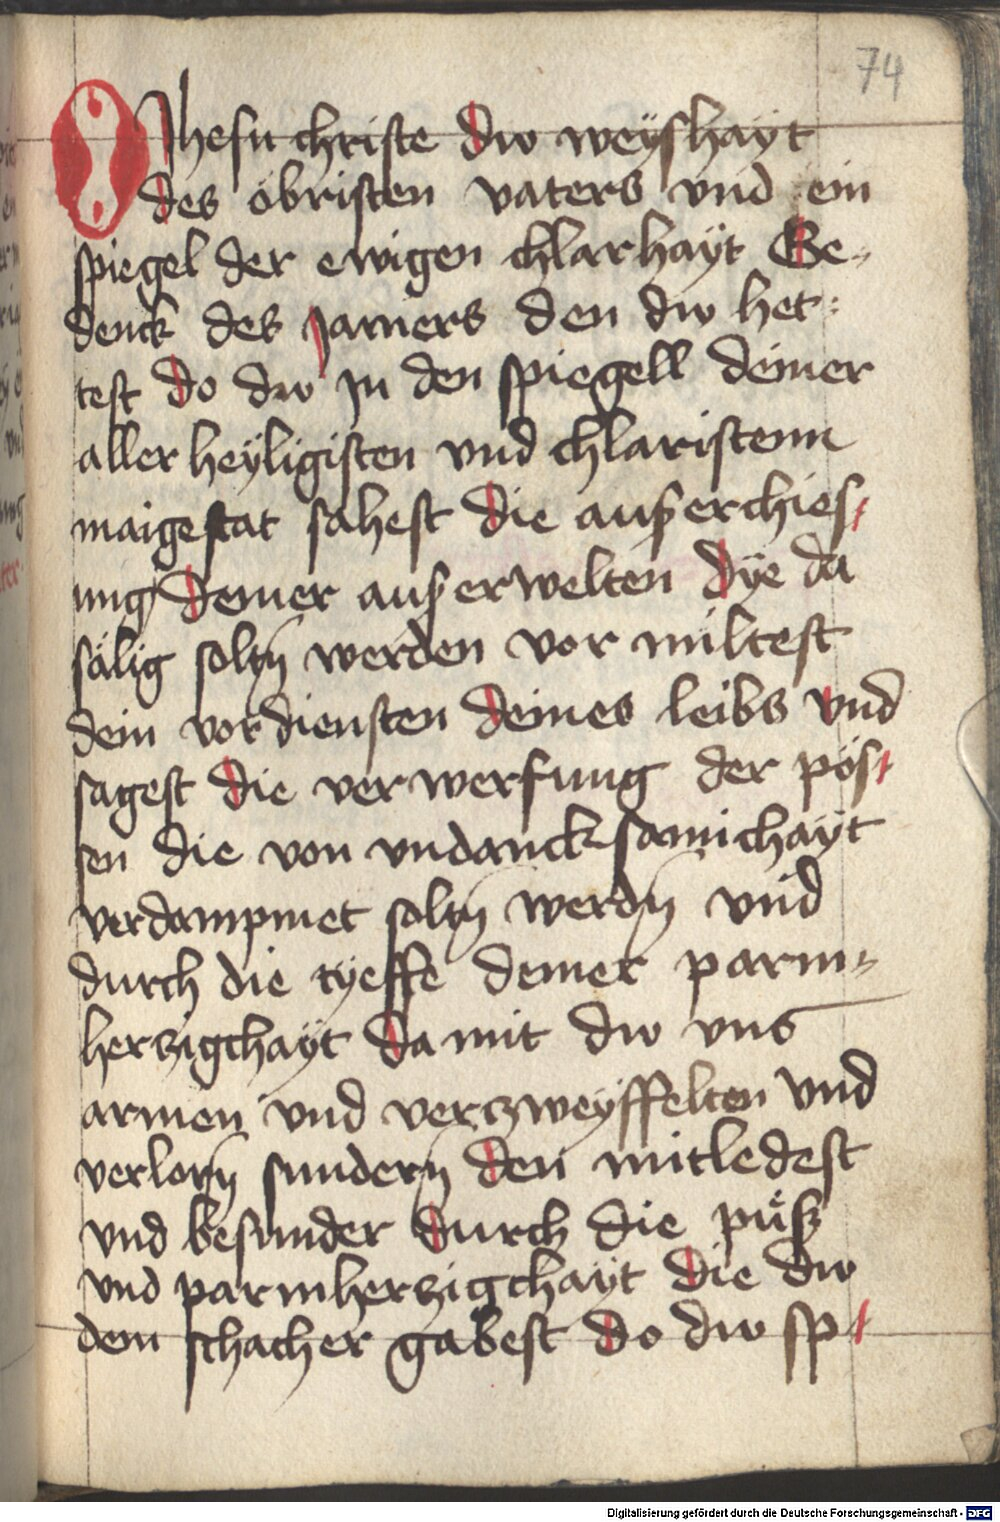 74
O Jhesu christe dw weyshayt
des öbristen vaters vnd ein
spiegel der ewigen chlarhayt Ge„
denck des jamers den dw het„
test do dw jn den spiegell deiner
aller heyligisten vnd chlaristenn
maigestat sahest die ausserchies„
ung deiner ausserwelten dye da
sälig soltn̄ werden vor miltest
dein vordiensten deines leibs vnd
sagest die verwerfung der pös„
sen die von vndancksamichayt
verdampmet soltn̄ werdn̄ vnd
durch die tyeffe deiner parm„
herzigchayt da mit dw vns
armen vnd verzweyffelten vnd
verlorn̄ sundern̄ den mitledest
vnd besunder durch die püß
vnd parmherzigchayt die dw
dem schacher gabest do dw sp„
Digitalisierung gefördert durch die Deutsche Forschungsgemeinschaft - DFG